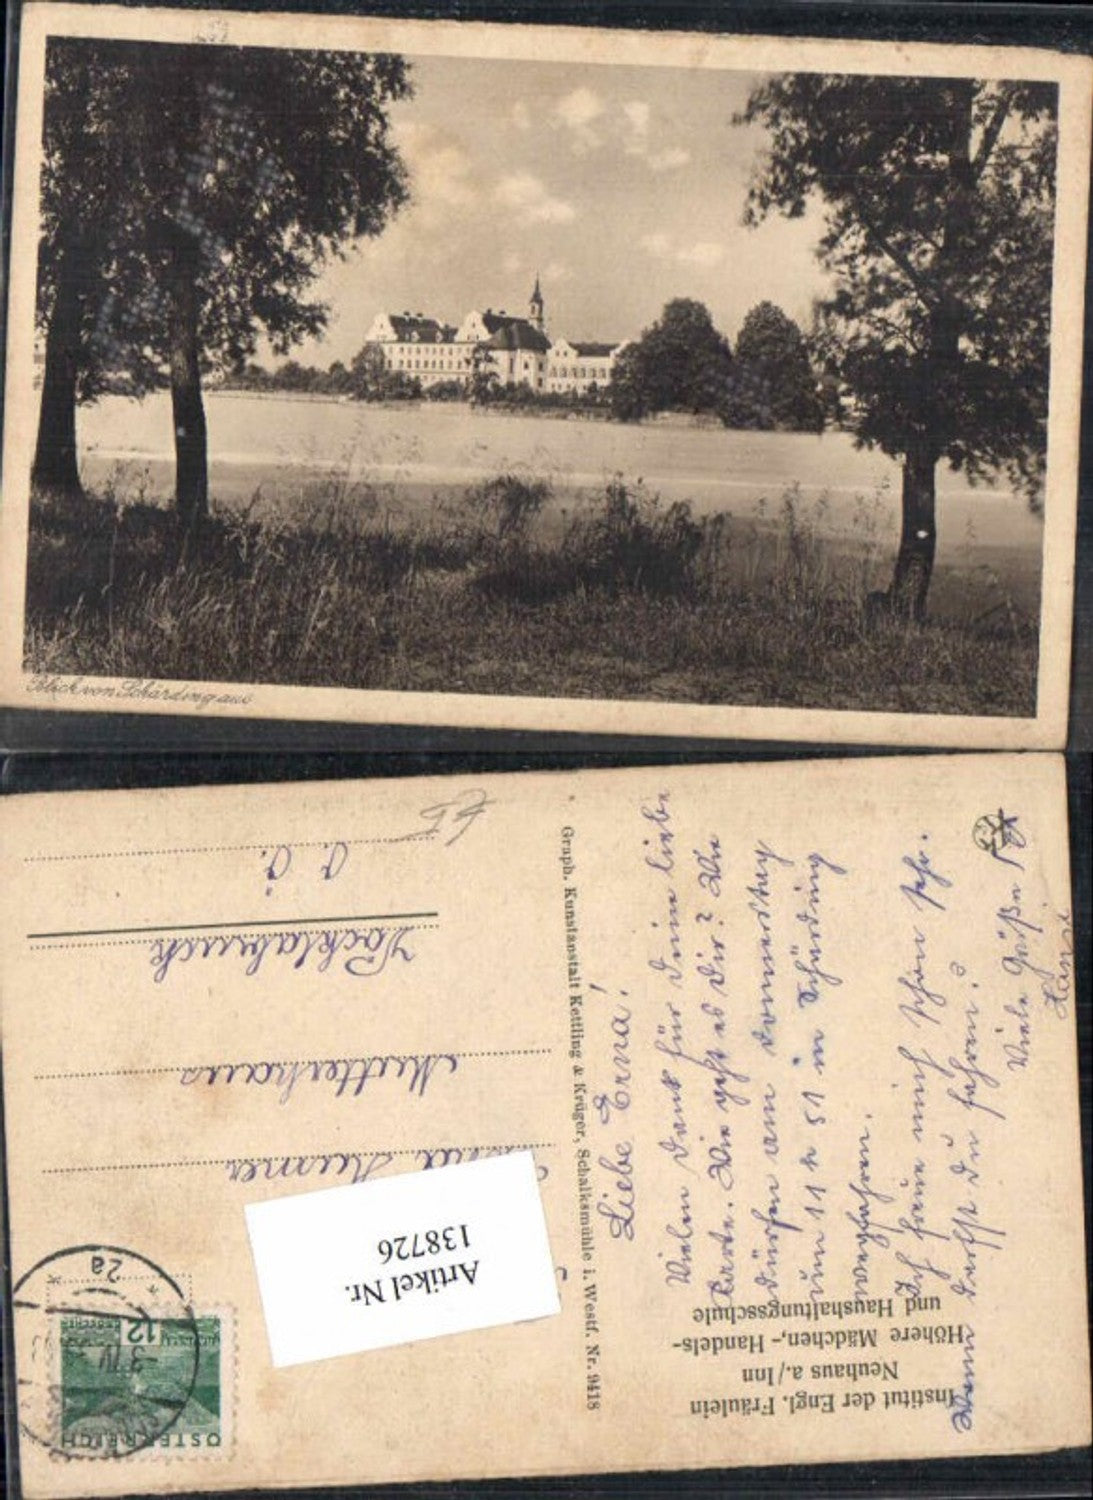 Blick von Schärding aus
Institut der Engl. Fräulein
Neuhaus a./Inn
Höhere Mädchen-, Handels-
und Haushaltungsschule
Liebe Erna!
Vielen Dank für Deine liebe
Karte. Wie geht es Dir? Wir
dürfen am Donnerstag
um 11 h 51 in Schärding
wegfahren.
Ich freue mich schon sehr.
Wann darfst Du fahren?
Viele Grüße
Hansi
Graph. Kunstanstalt Kettling & Krüger, Schalksmühle i. Westf. Nr. 9418
ÖSTERREICH
12
GROSCHEN
-3.IV
2a
Artikel Nr.
138726
Mutterhaus
Vöcklabruck
O. Ö.